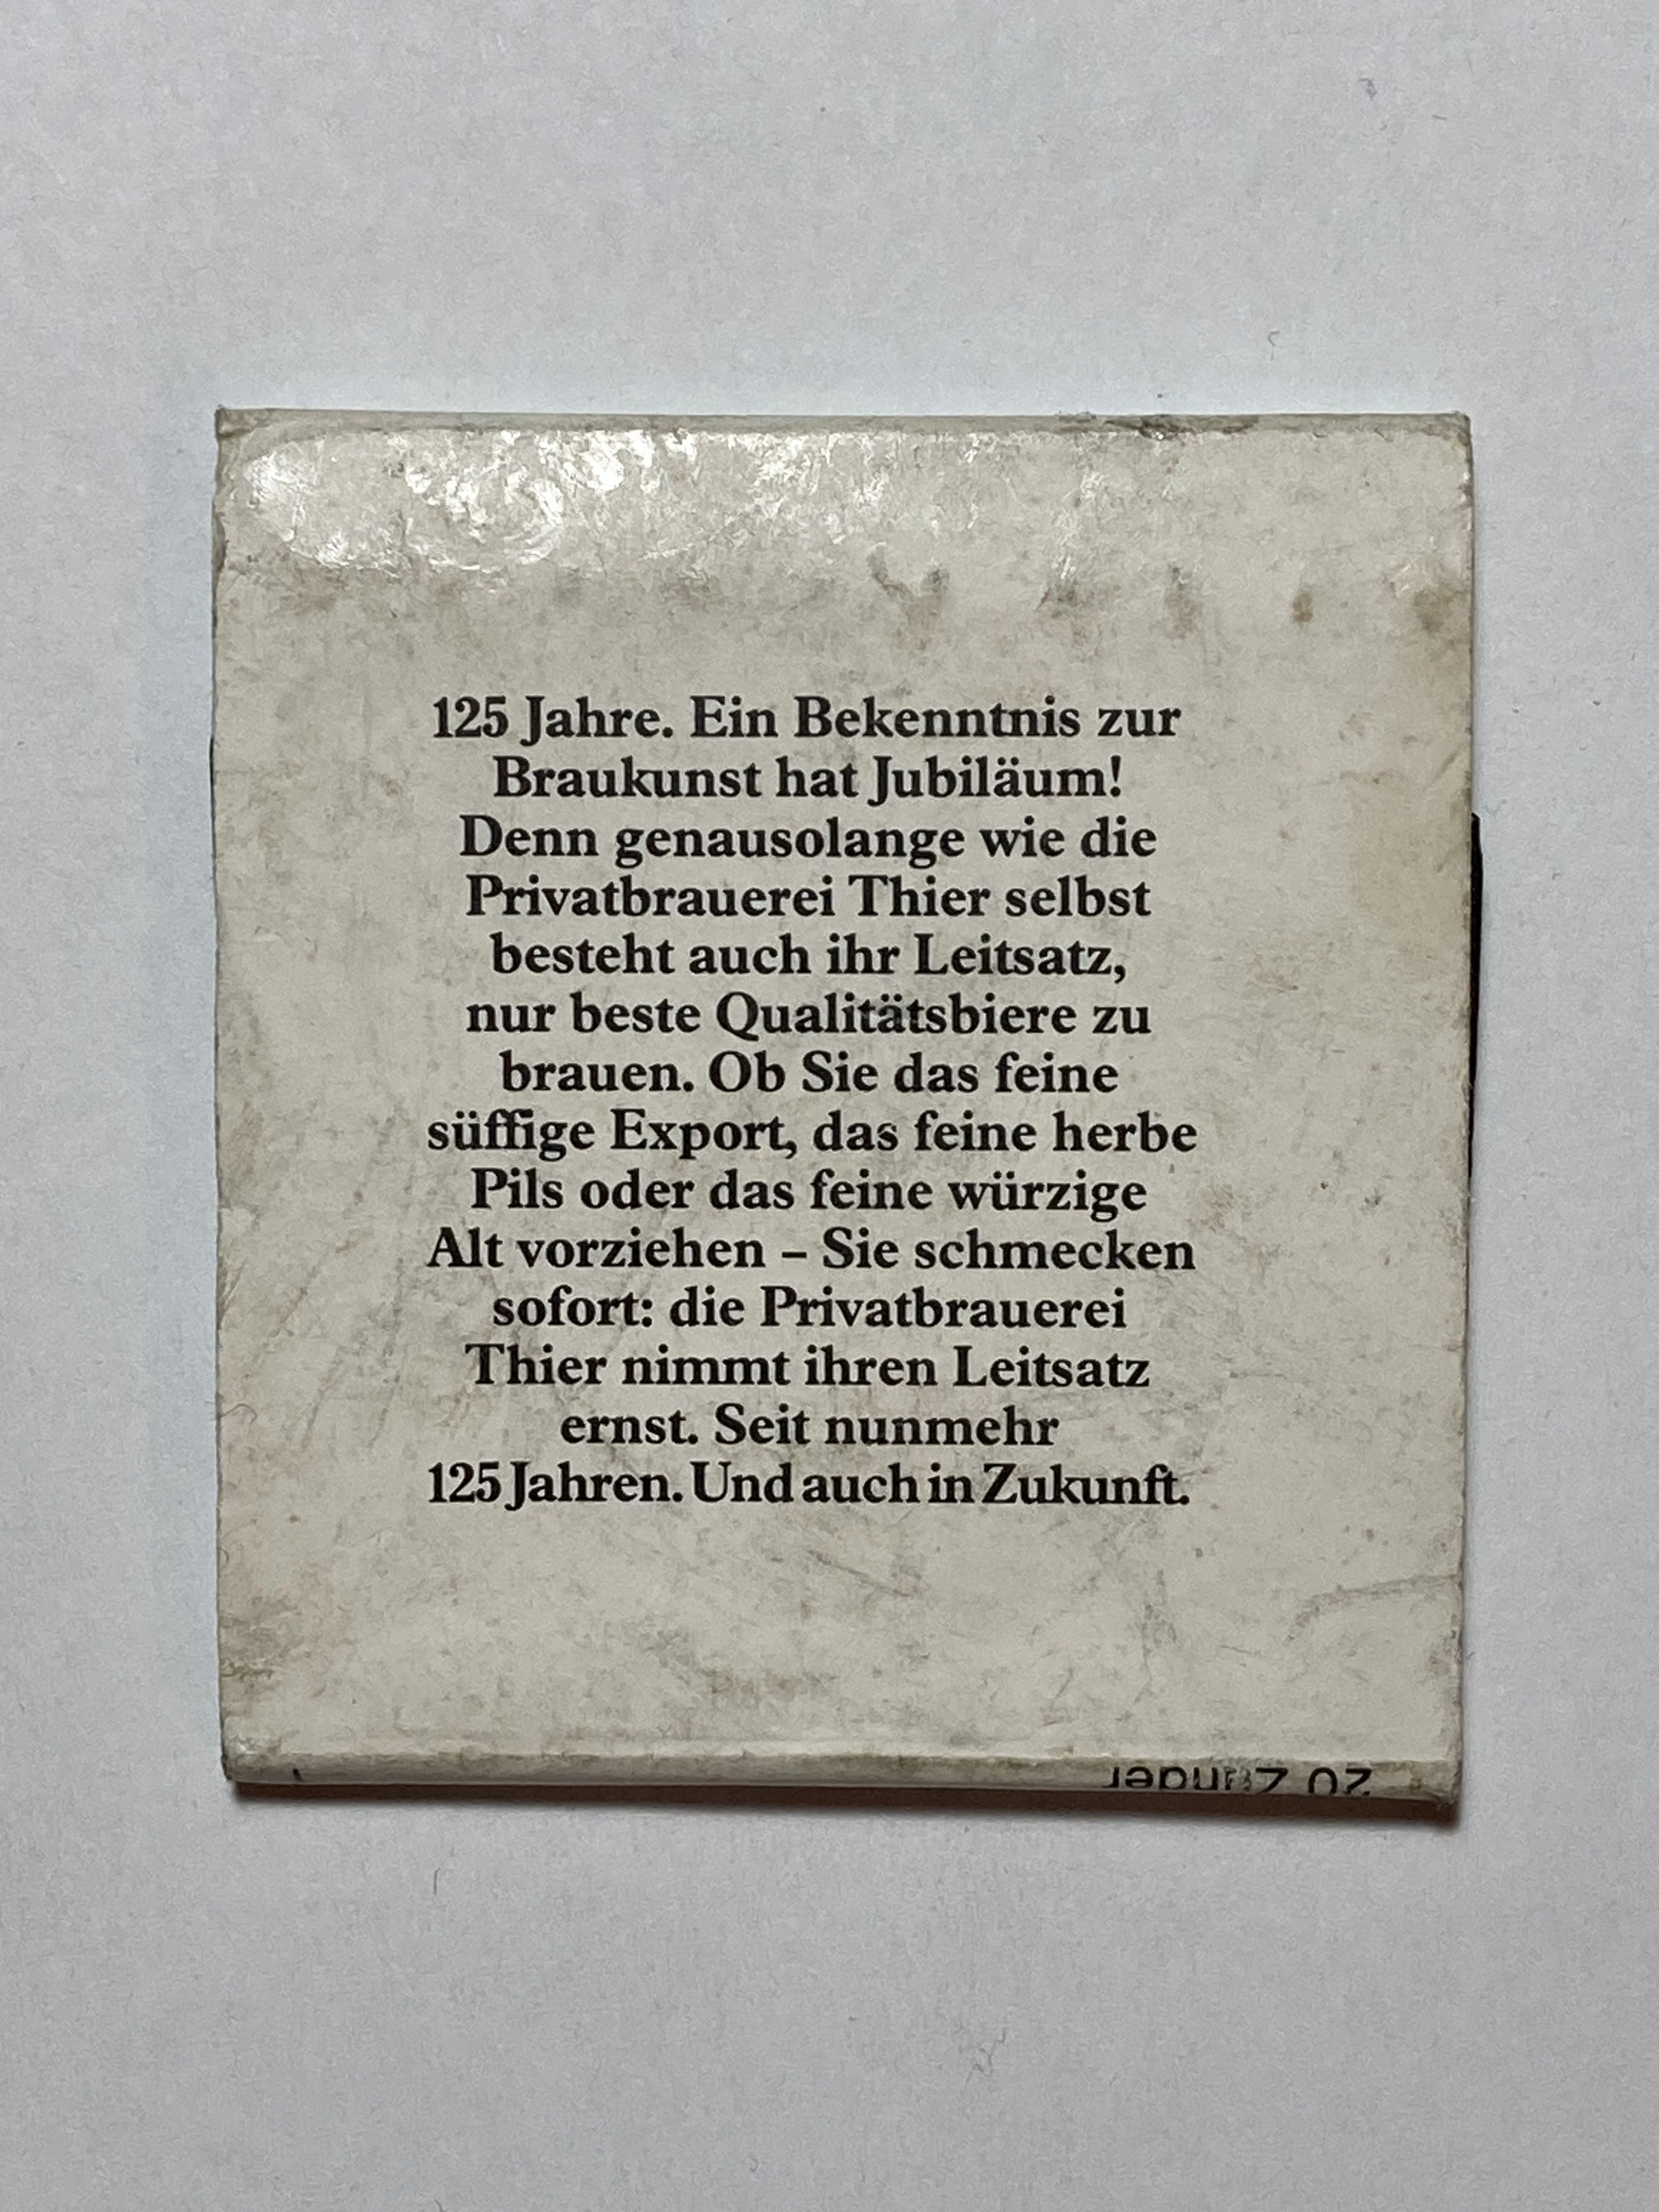 125 Jahre. Ein Bekenntnis zur
Braukunst hat Jubiläum!
Denn genausolange wie die
Privatbrauerei Thier selbst
besteht auch ihr Leitsatz,
nur beste Qualitätsbiere zu
brauen. Ob Sie das feine
süffige Export, das feine herbe
Pils oder das feine würzige
Alt vorziehen – Sie schmecken
sofort: die Privatbrauerei
Thier nimmt ihren Leitsatz
ernst. Seit nunmehr
125 Jahren. Und auch in Zukunft.
20 Zünder